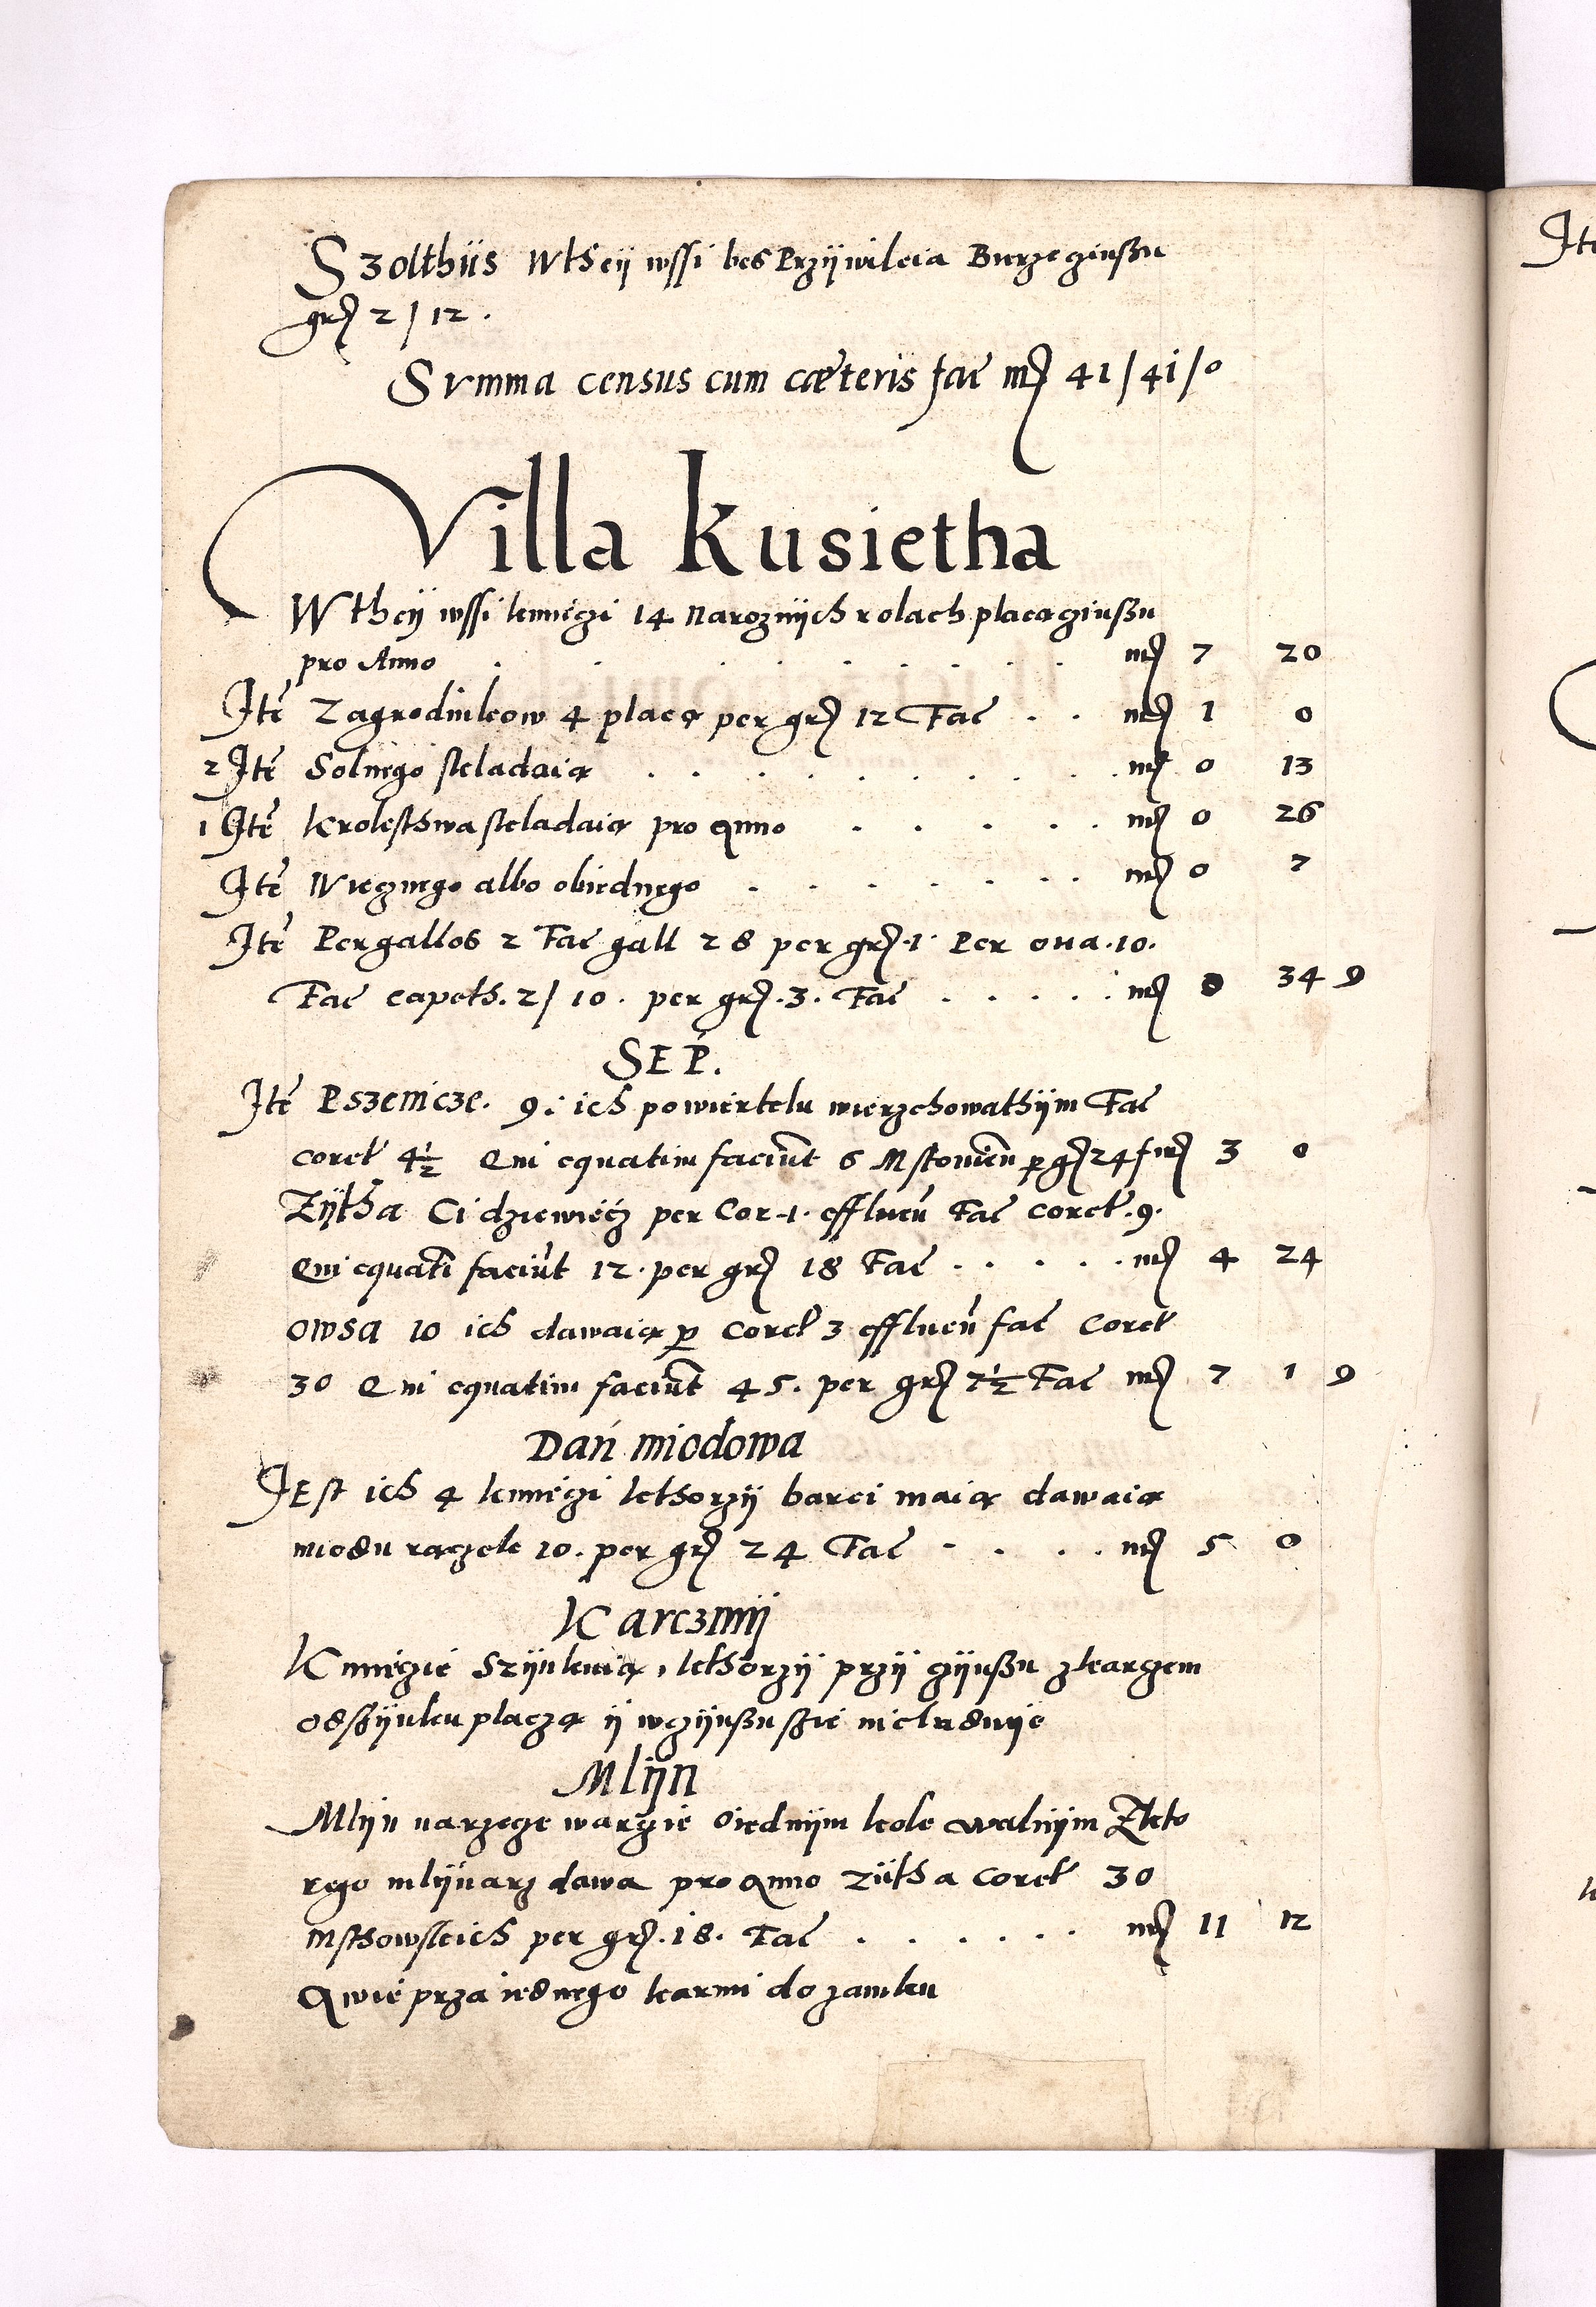 Szolthÿs Wtheÿ wssi bes Przÿwileia Bierze czinssu
grɉ 2/12.
Svmma census cum cæteris fac̃ mɉ 41/41/0
Villa Kusietha
Wtheÿ wssi kmieczi 14 Naroznÿch rolach placą czinssu
pro Anno . . . . . . . mɉ 7 20
Itẽ Zagrodnikow 4 placą per grɉ 12 Fac̃ . . mɉ 1 0
2 Itẽ Solnego skladaią . . . . . . . . mɉ 0 13
1 Itẽ Krolesthwa skladaią pro Anno . . . . . mɉ 0 26
Itẽ Wiecznego albo obiednego . . . . . . . mɉ 0 7
Itẽ Per gallos 2 Fac̃ gall 28 per grɉ .1. Per oua .10.
Fac̃ capeth. 2/10. per grɉ .3. Fac̃ . . . . . mɉ 0 34 9
SEP.
Itẽ Pszenicze. 9. ich po wiertelu wierzchowathÿm Fac̃
coret 4½ Qui equatim faciũt 6 Mstouien̄ p grɉ 24 f mɉ 3 0
Zÿtha Ci dziewiécz per Cor .1. effluen̄ Fac̃ coret .9.
Qui equati faciũt 12. per grɉ 18 Fac̃ . . . . . mɉ 4 24
owsa 10 ich dawaią p coret 3 effluen̄ fac̃ Coret
30 Qui equatim faciũt 45. per grɉ 7½ Fac̃ mɉ 7 1 9
Dań miodowa
Jest ich 4 kmieczi kthorzÿ barci maią dawaią
miodu rączek 10. per grɉ 24 Fac̃ . . . . mɉ 5 0
Karczmÿ
Kmieczie Szÿnkuią, kthorzÿ przÿ czÿnssu z karczem
od sszÿnku placzą ÿ w czÿnssu sszie includuÿe
Mlÿn
Mlÿn na rzecze warczie o iednÿm kole walnÿm Z kto
rego mlÿnarz dawa pro Anno zÿtha coret 30
Msthowskich per grɉ .18. Fac̃ . . . . . . mɉ 11 12
A wieprza iednego karmi do zamku
Ite